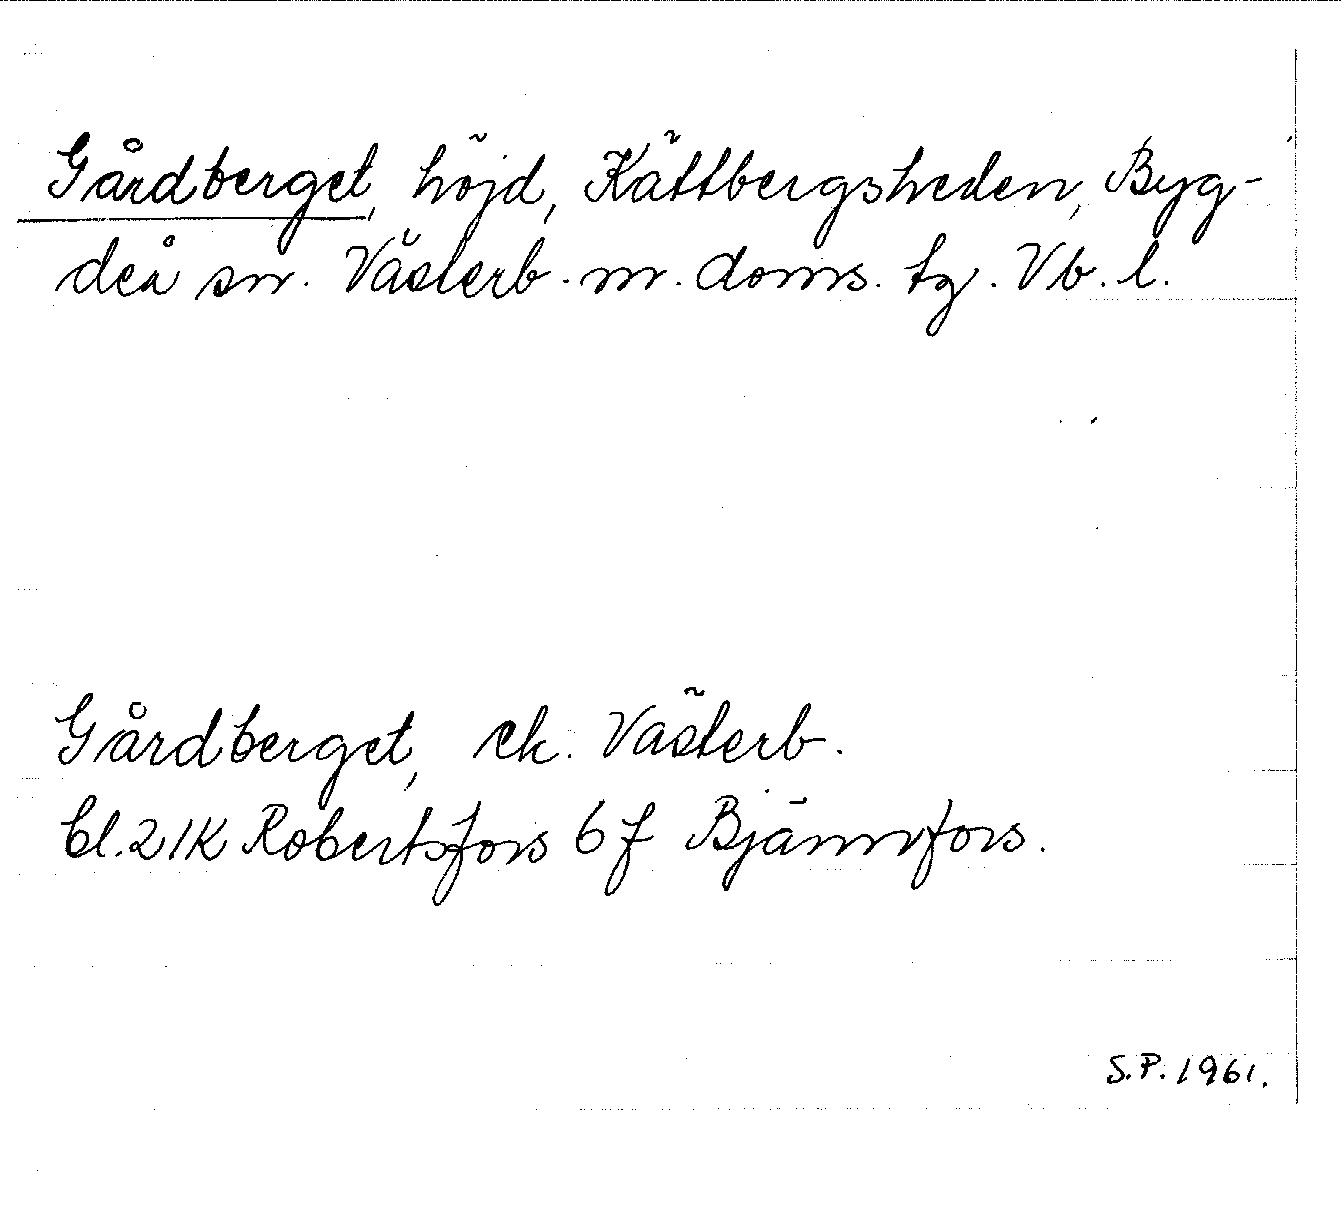 Gårdberget, höjd, Kättbergsheden, Byg-
deå sn. Västerb. m. doms. tg. Vb. l.
Gårdberget, ek. Västerb.
bl. 21K Robertsfors 6f Bjännfors.
S.P. 1961.